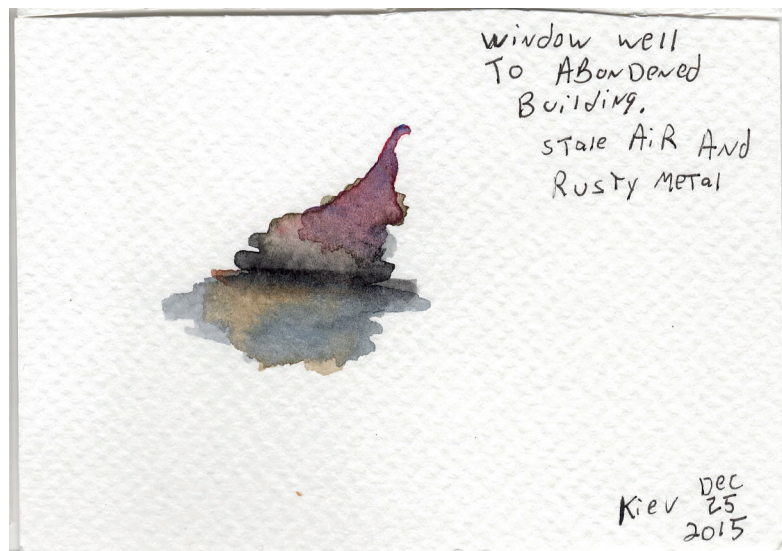 window well
To ABonDened
Building.
stale AiR And
Rusty Metal
Dec
Kiev 25
2015